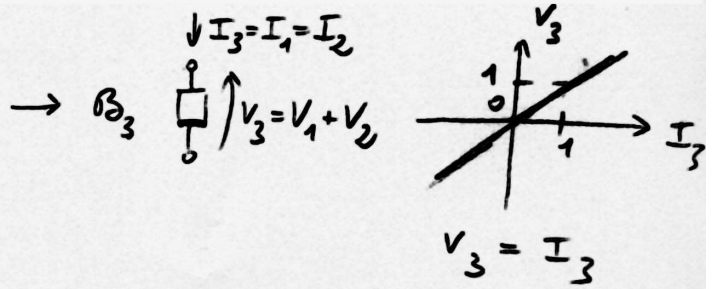 ↓ I₃=I₁=I₂
→ B₃ V₃=V₁+V₂
V₃
1
0
1
I₃
V₃ = I₃